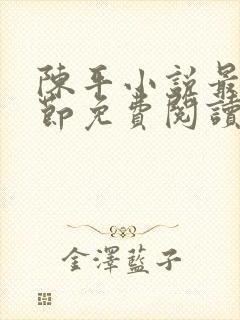 陳平小說最
節免費閱讀
金澤藍子